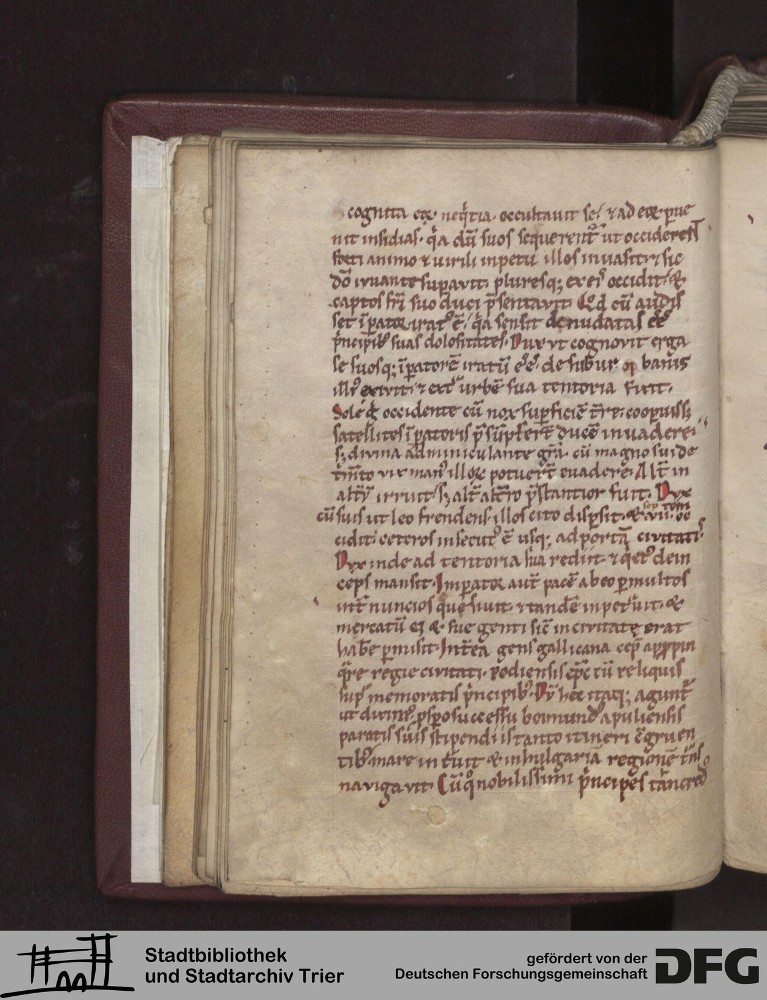 cognita eoꝝ neq̇tia. occultauit se. ⁊ ad eoꝝ pue
nit insidias. q̇a dū suos sequerent᷑ ut occiderent
forti animo ⁊ uirili inpetu illos inuasit. ⁊ sic
dō iuuante suꝑauit. pluresq; ex eis occidit. &
captos fr̄i suo duci p̄sentauit. Qd cū audis
set īꝑator iratꝰ ē. q̇a sensit denudatas eē
ṗncipibꝰ suas dolositates. Dux ut cognouit erga
se suosq; īꝑatorē iratū eē. de suburbanis
illis exiuit. ⁊ ext̄ urbē sua tentoria fixit.
Sole occidente cū nox suꝑficiē t̄re coopuiss;
satellites īꝑatoris p̄sūpserūt ducē inuadere.
s; diuina adminiculante gr̄a. cū magno sui de
ṫmto uix manꝰ illoꝝ potuert̄ euadere. Alt̄ in
alt̄ꝝ irruit. s; alt̄ alt̄ro p̄stantior fuit. Dux
cū suis ut leo frendens illos cito disꝑsit. &
cidit. ceteros insecutꝰ ē usq; ad portā ciuitatis.
Dux inde ad tentoria sua rediit. ⁊ q̇etꝰ dein
ceps mansit. Imꝑator aut̄ pacē ab eo ꝑ multos
int̄nuncios quesiuit. ⁊ tandē inpetuit. &
mercatū ei & sue genti sic̄ in ciuitate erat
habe ꝑmisit. Int̄ea gens gallicana cep̄ appin
q̇re regie ciuitati. podiensis ep̄c cū reliquis
sup̄ memoratis ṗncipibꝰ. Dū hec itaq; agunt᷑
ut diuino psꝑo successu boimundꝰ apuliensis
paratis suis stipendiis tanto itineri ɔgruen
tibꝰ mare int̄uit & in bulgariā regionē t̄ns
nauigauit. Cū q̊ nobilissimi p̄ncipes tancredꝰ
Stadtbibliothek
und Stadtarchiv Trier
gefördert von der
Deutschen Forschungsgemeinschaft
DFG